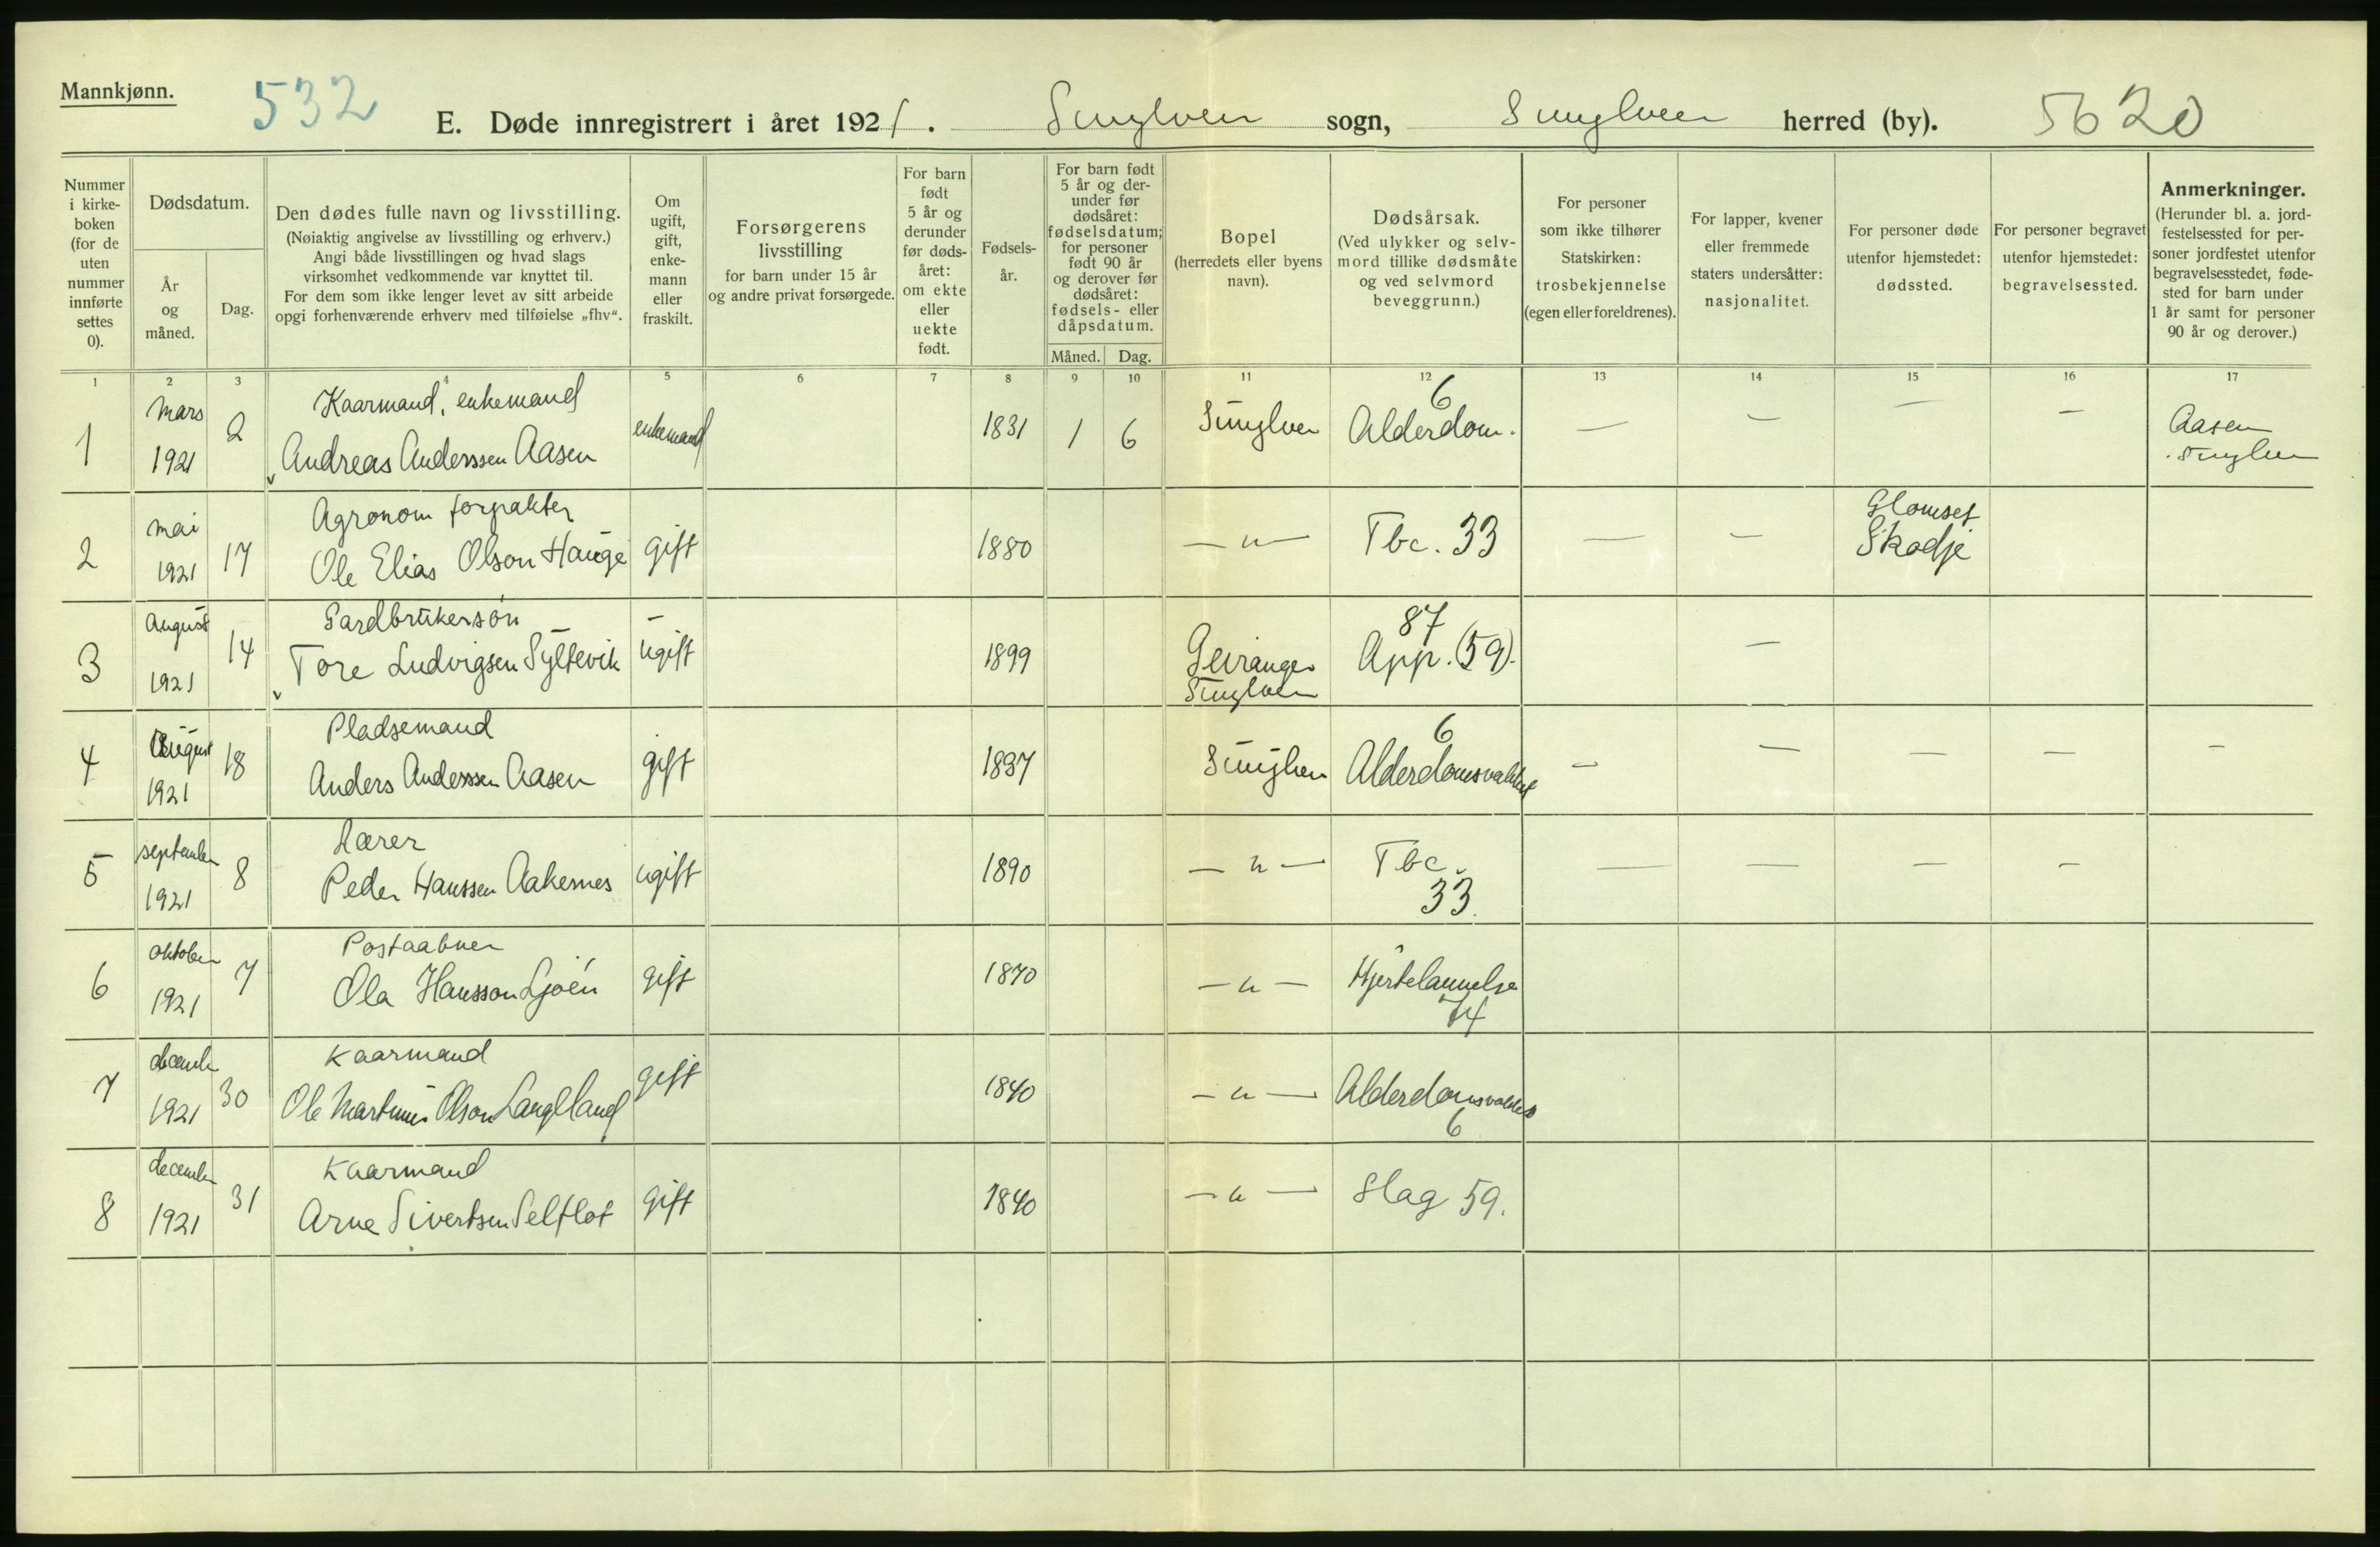 Mannkjønn.
532
E. Døde innregistrert i året 1921. Sunylven sogn, Sunylven herred (by). 5620
Nummer i kirke- boken (for de uten nummer innførte settes 0).
Dødsdatum.
År og måned.
Dag.
Den dødes fulle navn og livsstilling.
(Nøiaktig angivelse av livsstilling og erhverv.)
Angi både livsstillingen og hvad slags
virksomhet vedkommende var knyttet til.
For dem som ikke lenger levet av sitt arbeide
opgi forhenværende erhverv med tilføielse „fhv“.
Om ugift, gift, enke- mann eller fraskilt.
Forsørgerens
livsstilling
for barn under 15 år
og andre privat forsørgede.
For barn født 5 år og derunder før døds- året: om ekte eller uekte født.
Fødsels- år.
For barn født 5 år og der- under før dødsåret: fødselsdatum; for personer født 90 år og derover før dødsåret: fødsels- eller dåpsdatum.
Måned. Dag.
Bopel
(herredets eller byens
navn).
Dødsårsak.
(Ved ulykker og selv-
mord tillike dødsmåte
og ved selvmord
beveggrunn.)
For personer
som ikke tilhører
Statskirken:
trosbekjennelse
(egen eller foreldrenes).
For lapper, kvener
eller fremmede
staters undersåtter:
nasjonalitet.
For personer døde
utenfor hjemstedet:
dødssted.
For personer begravet
utenfor hjemstedet:
begravelsessted.
Anmerkninger.
(Herunder bl. a. jord-
festelsessted for per-
soner jordfestet utenfor
begravelsesstedet, føde-
sted for barn under
1 år samt for personer
90 år og derover.)
1 2 3 4 5 6 7 8 9 10 11 12 13 14 15 16 17
1 mars 1921 2 Kaarmand, enkemand
Andreas Anderssen Aasen enkemand 1831 1 6 Sunylven 6 Alderdom. — — — — Aasen Sunylven
2 mai 1921 17 Agronom forpakter
Ole Elias Olson Hauge gift 1880 — " — Tbc. 33 — — Glomset Skodje
3 August 1921 14 Gardbrukersøn
Tore Ludvigsen Syltevik ugift 1899 Geiranger Sunylven 87 App. (59). —
4 August 1921 18 Pladsemand
Anders Anderssen Aasen gift 1837 Sunylven 6 Alderdomsvakhet — — — — —
5 september 1921 8 Lærer
Peder Hanssen Aakernes ugift 1890 — " — Tbc. 33. — — — —
6 oktober 1921 7 Postaabner
Ola Hansson Ljøen gift 1870 — " — Hjertelammelse 74
7 december 1921 30 Kaarmand
Ole Martinus Olson Langeland gift 1840 — " — Alderdomsvakhet 6
8 december 1921 31 Kaarmand
Arne Sivertsen Selflot gift 1840 — " — Slag 59.